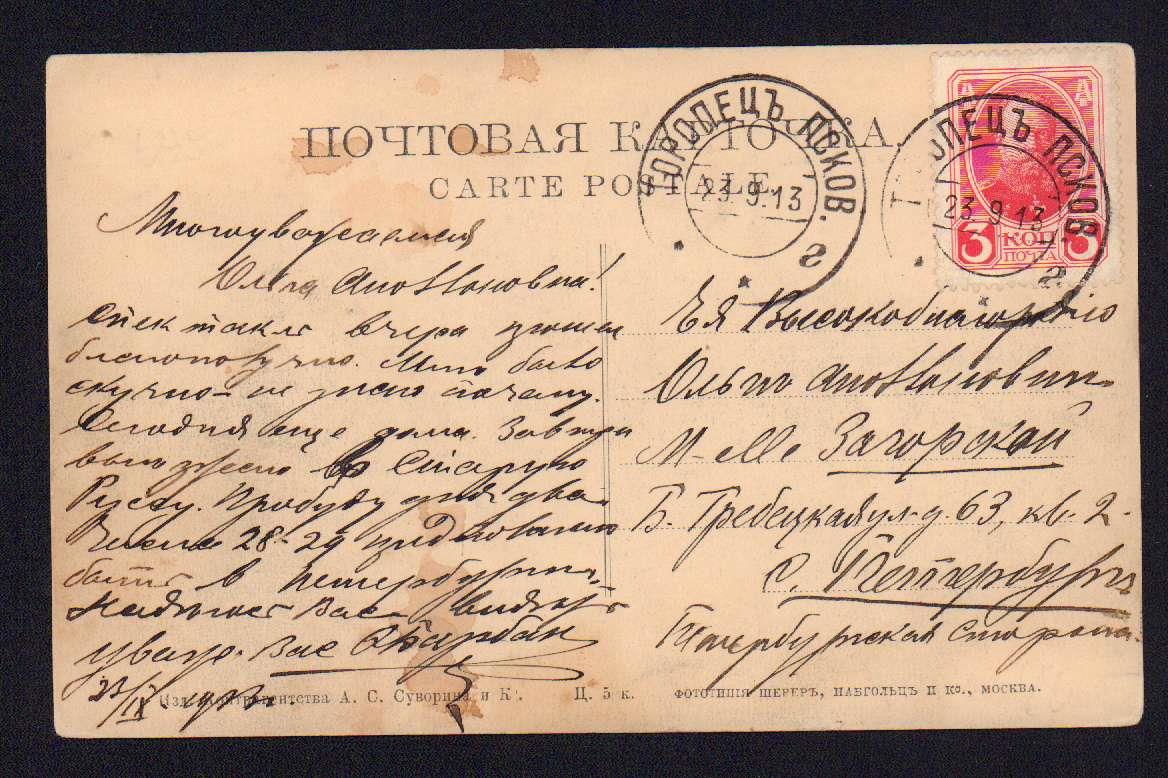 ПОЧТОВАЯ КАРТОЧКА.
CARTE POSTALE.
ТОРОПЕЦЪ ПСКОВ.
23.9.13
2
ТОРОПЕЦЪ ПСКОВ.
23.9.13
2
3 КОП 3
ПОЧТА
Многоуважаемая
Ольга Аполлоновна!
Спектакль вчера прошел
благополучно. Мне было
скучно – не знаю почему.
Сегодня еще дома. Завтра
выезжаю в Старую
Руссу. Пробуду дня два.
Числа 28-29
быть в Петербургѣ.
Надеюсь Вас видеть
уваж. Вас
23/IX
Ея Высокоблагородію
Ольгѣ Аполлоновнѣ
M-elle Загорской
Б. Гребецкая ул. д 63, кв. 2.
С. Петербургъ
Петербургская сторона.
Изд. Контрагентства А. С. Суворина и Ко. Ц. 5 к. ФОТОТИПІЯ ШЕРЕРЪ, НАБГОЛЬЦЪ И Ко., МОСКВА.